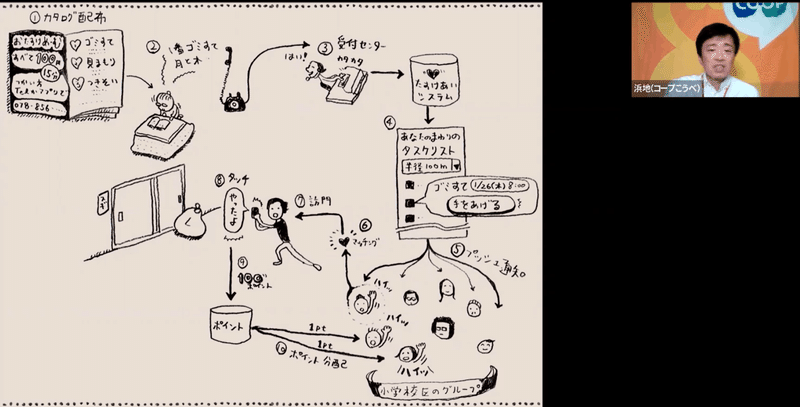 ① カタログ配布
おたすけめにう
すべて100円
15分
つかい方
TELかアプリで
078-856-
ゴミすて
見まもり
つきそい
②
1番ゴミすて
月と木
③ 受付センター
はい!
カタカタ
たすけあい
システム
④
あなたのまわりの
タスクリスト
半径100m
ゴミすて 1/26(木) 8:00
手をあげる
⑤ プッシュ通知。
⑥
マッチング
⑦ 訪問
⑧ タッチ
やったよ
⑨
100
ポイント
ポイント
1pt
1pt
⑩ ポイント分配
ハイッ
ハイッ
ハイッ
小学校区のグループ
浜地(コープこうべ)
CO-OP